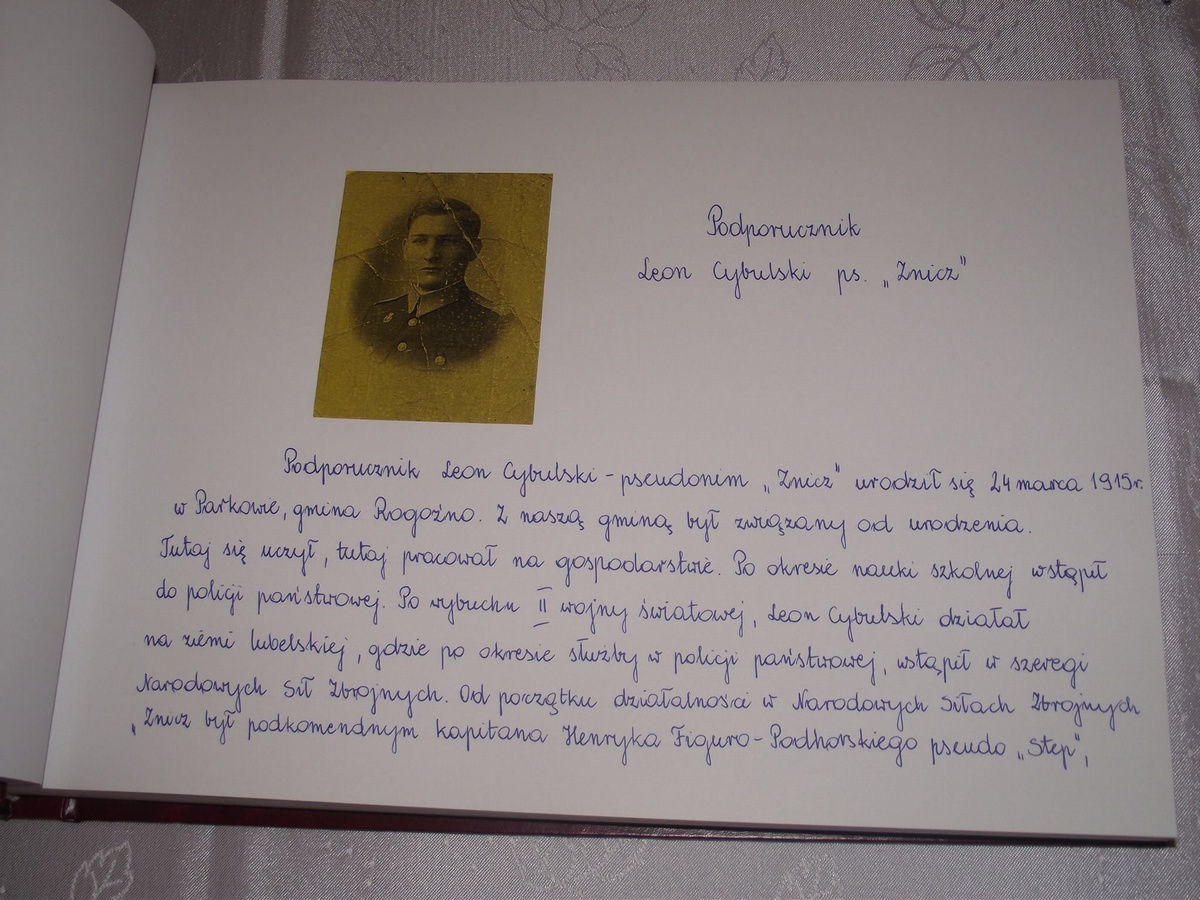 Podporucznik
Leon Cybulski ps. „Znicz"
Podporucznik Leon Cybulski - pseudonim „Znicz" urodził się 24 marca 1915r.
w Parkowie, gmina Rogoźno. Z naszą gminą był związany od urodzenia.
Tutaj się uczył, tutaj pracował na gospodarstwie. Po okresie nauki szkolnej wstąpił
do policji państwowej. Po wybuchu II wojny światowej, Leon Cybulski działał
na ziemi lubelskiej, gdzie po okresie służby w policji państwowej, wstąpił w szeregi
Narodowych Sił Zbrojnych. Od początku działalności w Narodowych Siłach Zbrojnych
„Znicz był podkomendnym kapitana Henryka Figuro-Podhorskiego pseudo „Step",